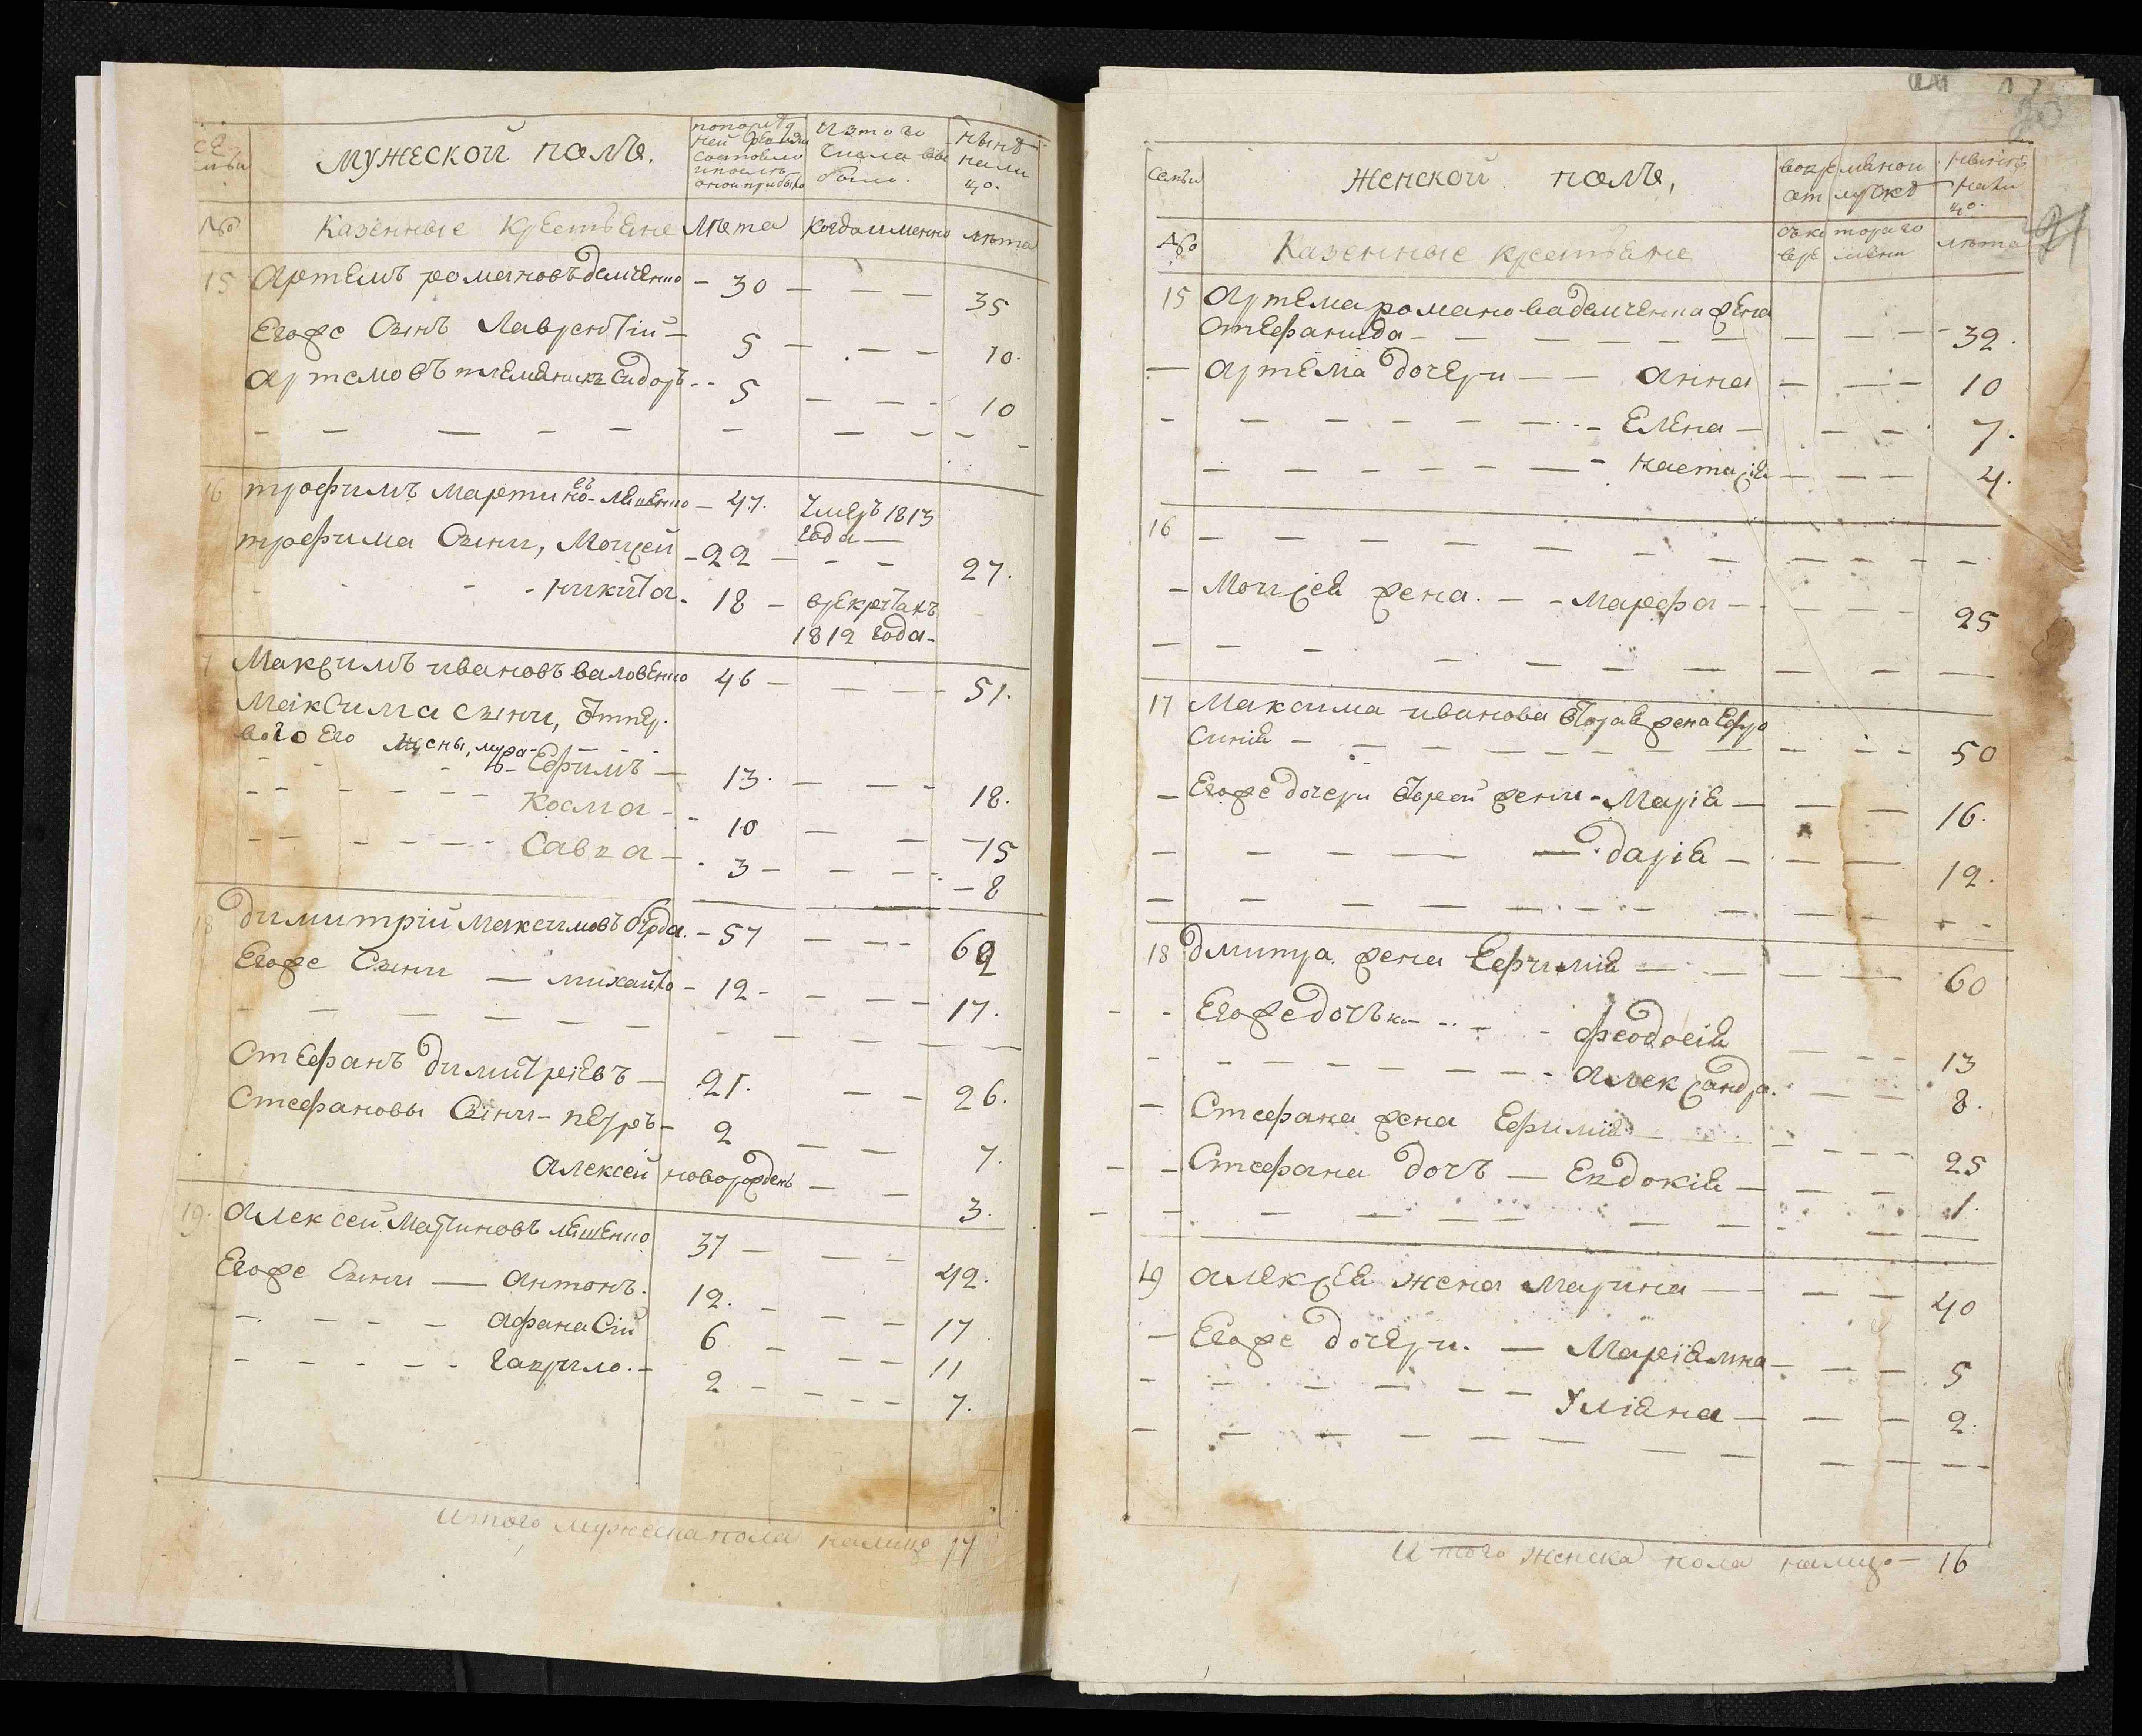 Семьи
мужеской полъ.
попослед
ней ревизіи
состояло
и после
оной прибыло
Изтого
числа вы
было.
ныне
нали
цо.
№
Казенные Крестьяне
Лета
когда именно
лета
15 Артемъ романовъ демченко - 30 - - - 35
Егоже Сынъ Лаврентій - 5 - - - 10.
Артемовъ племяникъ Сидоръ - - 5 - - - 10
16 трофимъ мартиновъ - Лешенко - 47. Умеръ 1813
года -
трофима Сыни, Мойсей - 22 - - - 27.
- никита - 18 - врекрутахъ
1812 года -
17 Максимъ ивановъ валовенко 46 - - - 51.
Максима сыни, Отпер
вого Его жены,
Ефимъ - 13. - - - 18.
Косма - 10 - - 15
Савка - 3 - - - 8
18 Димитрій Максимовъ бурда. - 57 - - - 62
Егоже Сыни - михайло - 12 - - - 17.
Стефанъ Димитріевъ - 21. - - 26.
Стефановы Сыни - петръ - 2 - - 7.
Алексей новорожденъ - - 3.
19. Алексей Мартиновъ лешенко 37 - - - 42.
Егоже Сыни - Антонъ. 12. - - - 17
- - - - Афанасій 6 - - - 11
- - - - - Гаврило. - 2 - - - 7.
Итого мужеска пола налицо 17
Семьи
женской полъ,
вовременой
отлучке
ныне
нали
цо.
21
№
Казенные крестьяне
съкотораго
времени
лета
15 Артема романова демченка жена
Стефанида - - - 32.
- Артема дочери - - Анна - - - 10
- - - Елена - - - 7.
- - - настасія - - - 4.
16 - - -
- Мойсея жена. - - Марфа - - - 25
17 Максима иванова вторая жена Ефро
синия - - - 50
- Егоже дочери второй жени - Марія - - - 16.
- - - дарія - - - 12.
18 Дмитра жена Ефимия - - - 60
- - Егоже дочьки - - - феодосія - - - 13
- - - Александра. - - 8.
- Стефана жена Ефимия - - - 25
- - Стефана дочь - Евдокія - - - 1.
19 Алексея жена Марина - - - 40
- Егоже дочери. - Маріямна - - - 5
- - - Уліяна - - - 2.
Итого женска пола налицо - 16